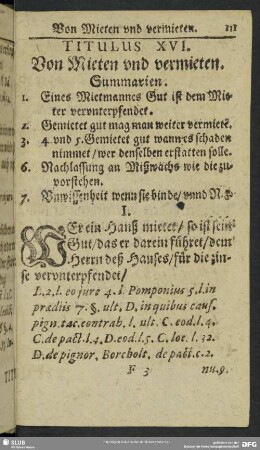 Von Mieten vnd vermieten. 111
TITULUS XVI.
Von Mieten vnd vermieten.
Summarien.
1. Eines Mietmannes Gut ist dem Mie-
ter vervnterpfendet.
2. Gemietet gut mag man weiter vermiete.
3. 4 vnd 5. Gemietet gut wann es schaden
nimmet / wer denselben erstatten solle.
6. Nachlassung an Mißwachs wie die zu-
vorstehen.
7. Vnwissenheit wenn sie binde / vnnd
I.
WEr ein Hauß mietet / so ist sein
Gut / das er darein führet / dem
Herrn deß Hauses / für die zin-
se vervnterpfendet /
L. 2. l. eo jure 4. l. Pomponius 5. l. in
prædiis 7. §. ult. D. in quibus caus.
pign. tac. contrah. l. ult. C. eod. l. 4.
C. de pact. l. 4. D. eod. l. 5. C. loc. l. 32.
D. de pignor. Borcholt. de pact. c. 2.
F 3 nu. 9.
SLUB
DFG